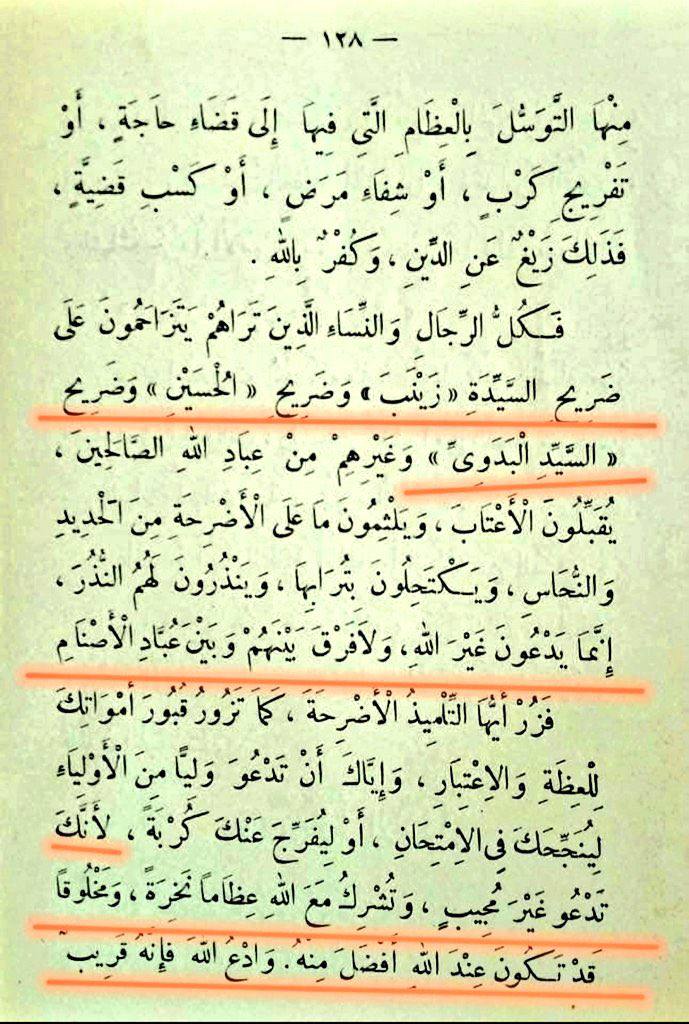 — ١٢٨ —
مِنْهَا التَّوَسُّلَ بِالْعِظَامِ الَّتِي فِيهَا إِلَى قَضَاءِ حَاجَةٍ ، أَوْ
تَفْرِيجِ كَرْبٍ ، أَوْ شِفَاءِ مَرَضٍ ، أَوْ كَسْبِ قَضِيَّةٍ ،
فَذَلِكَ زَيْغٌ عَنِ الدِّينِ ، وَكُفْرٌ بِاللهِ .
فَكُلُّ الرِّجَالِ وَالنِّسَاءِ الَّذِينَ تَرَاهُمْ يَتَزَاحَمُونَ عَلَى
ضَرِيحِ السَّيِّدَةِ « زَيْنَبَ » وَضَرِيحِ « الْحُسَيْنِ » وَضَرِيحِ
« السَّيِّدِ الْبَدَوِىِّ » وَغَيْرِهِمْ مِنْ عِبَادِ اللهِ الصَّالِحِينَ ،
يُقَبِّلُونَ الْأَعْتَابَ ، وَيَلْثِمُونَ مَا عَلَى الْأَضْرِحَةِ مِنَ الْحَدِيدِ
وَالنُّحَاسِ ، وَيَكْتَحِلُونَ بِتُرَابِهَا ، وَيَنْذُرُونَ لَهُمُ النُّذُرَ ،
إِنَّمَا يَدْعُونَ غَيْرَ اللهِ ، وَلَا فَرْقَ بَيْنَهُمْ وَبَيْنَ عُبَّادِ الْأَصْنَامِ
فَزُرْ أَيُّهَا التِّلْمِيذُ الْأَضْرِحَةَ ، كَمَا تَزُورُ قُبُورَ أَمْوَاتِكَ
لِلْعِظَةِ وَالِاعْتِبَارِ ، وَإِيَّاكَ أَنْ تَدْعُوَ وَلِيًّا مِنَ الْأَوْلِيَاءِ
لِيُنَجِّحَكَ فِي الِامْتِحَانِ ، أَوْ لِيُفَرِّجَ عَنْكَ كُرْبَةً ، لِأَنَّكَ
تَدْعُو غَيْرَ مُجِيبٍ ، وَتُشْرِكُ مَعَ اللهِ عِظَاماً نَخِرَةً ، وَمَخْلُوقاً
قَدْ تَكُونَ عِنْدَ اللهِ أَفْضَلَ مِنْهُ . وَادْعُ اللهَ فَإِنَّهُ قَرِيبٌ